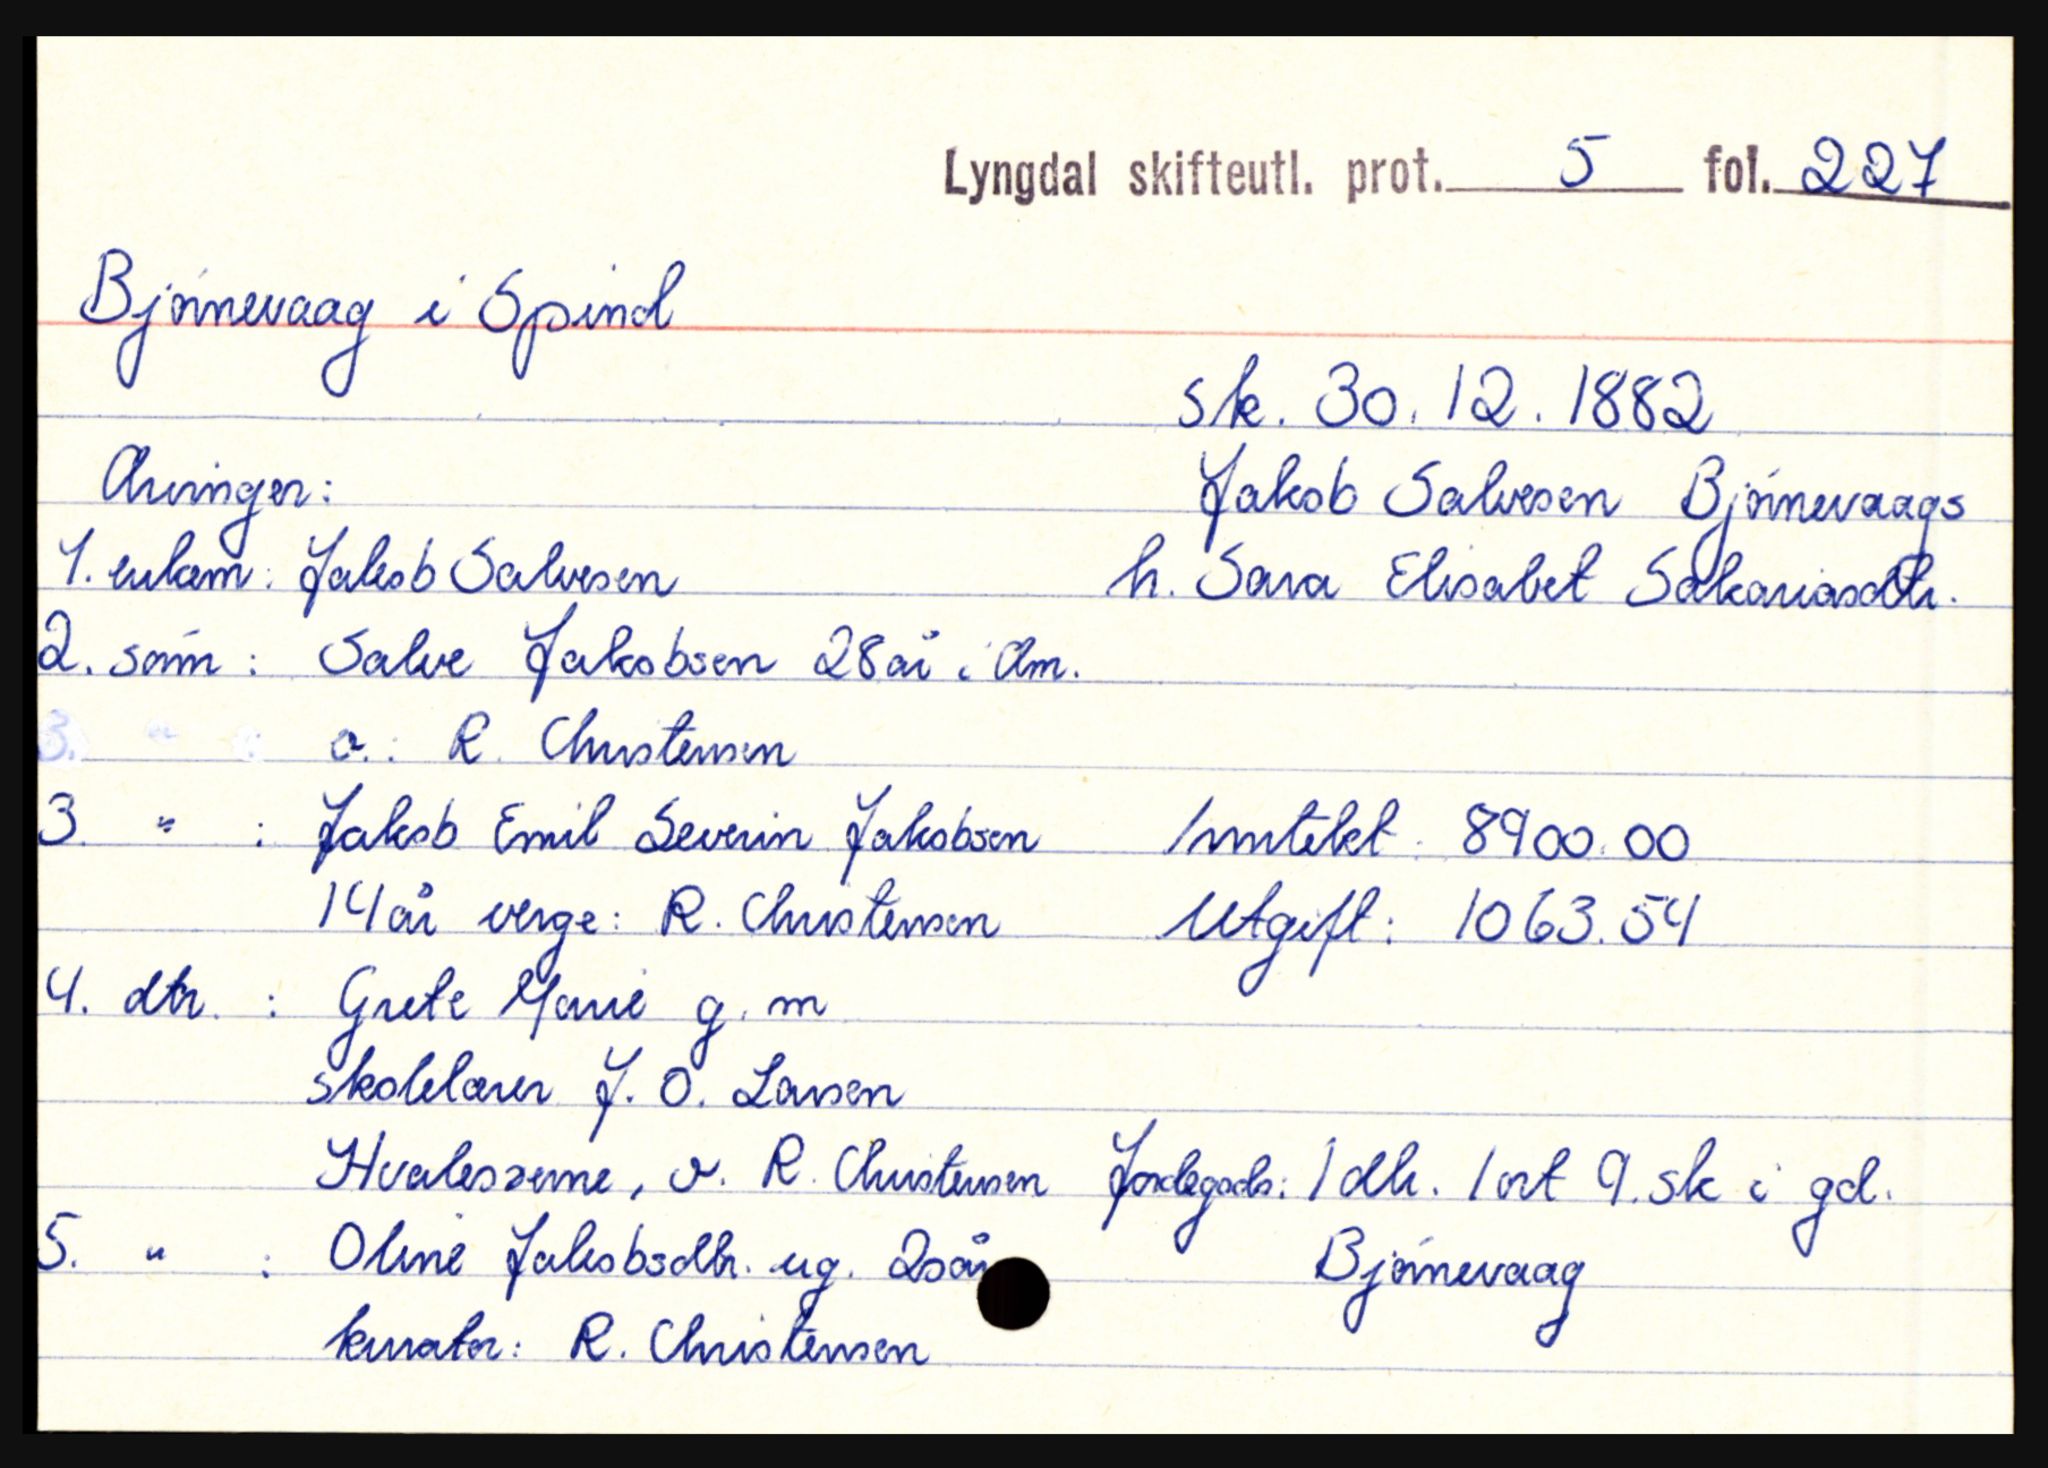 Lyngdal skifteutl. prot. 5 fol. 227
Bjørnevaag i Spind
sk. 30.12.1882
Arvinger: Jakob Salvesen Bjørnevaags
1. enkem: Jakob Salvesen h. Sara Elisabet Sakariasdtr.
2. sønn: Salve Jakobsen 28 år i Am.
3. " : v.: R. Christensen
3. " : Jakob Emil Severin Jakobsen Inntekt: 8900.00
14 år verge: R. Christensen Utgift: 1063.54
4. dtr. : Grete Marie g. m
skolelærer J. O. Larsen
Hvalesterne, v. R. Christensen Jordegods: 1 dlr. 1 ort 9. sk i gd.
5. " : Oline Jakobsdtr. ug. 20 år Bjørnevaag
kurator: R. Christensen